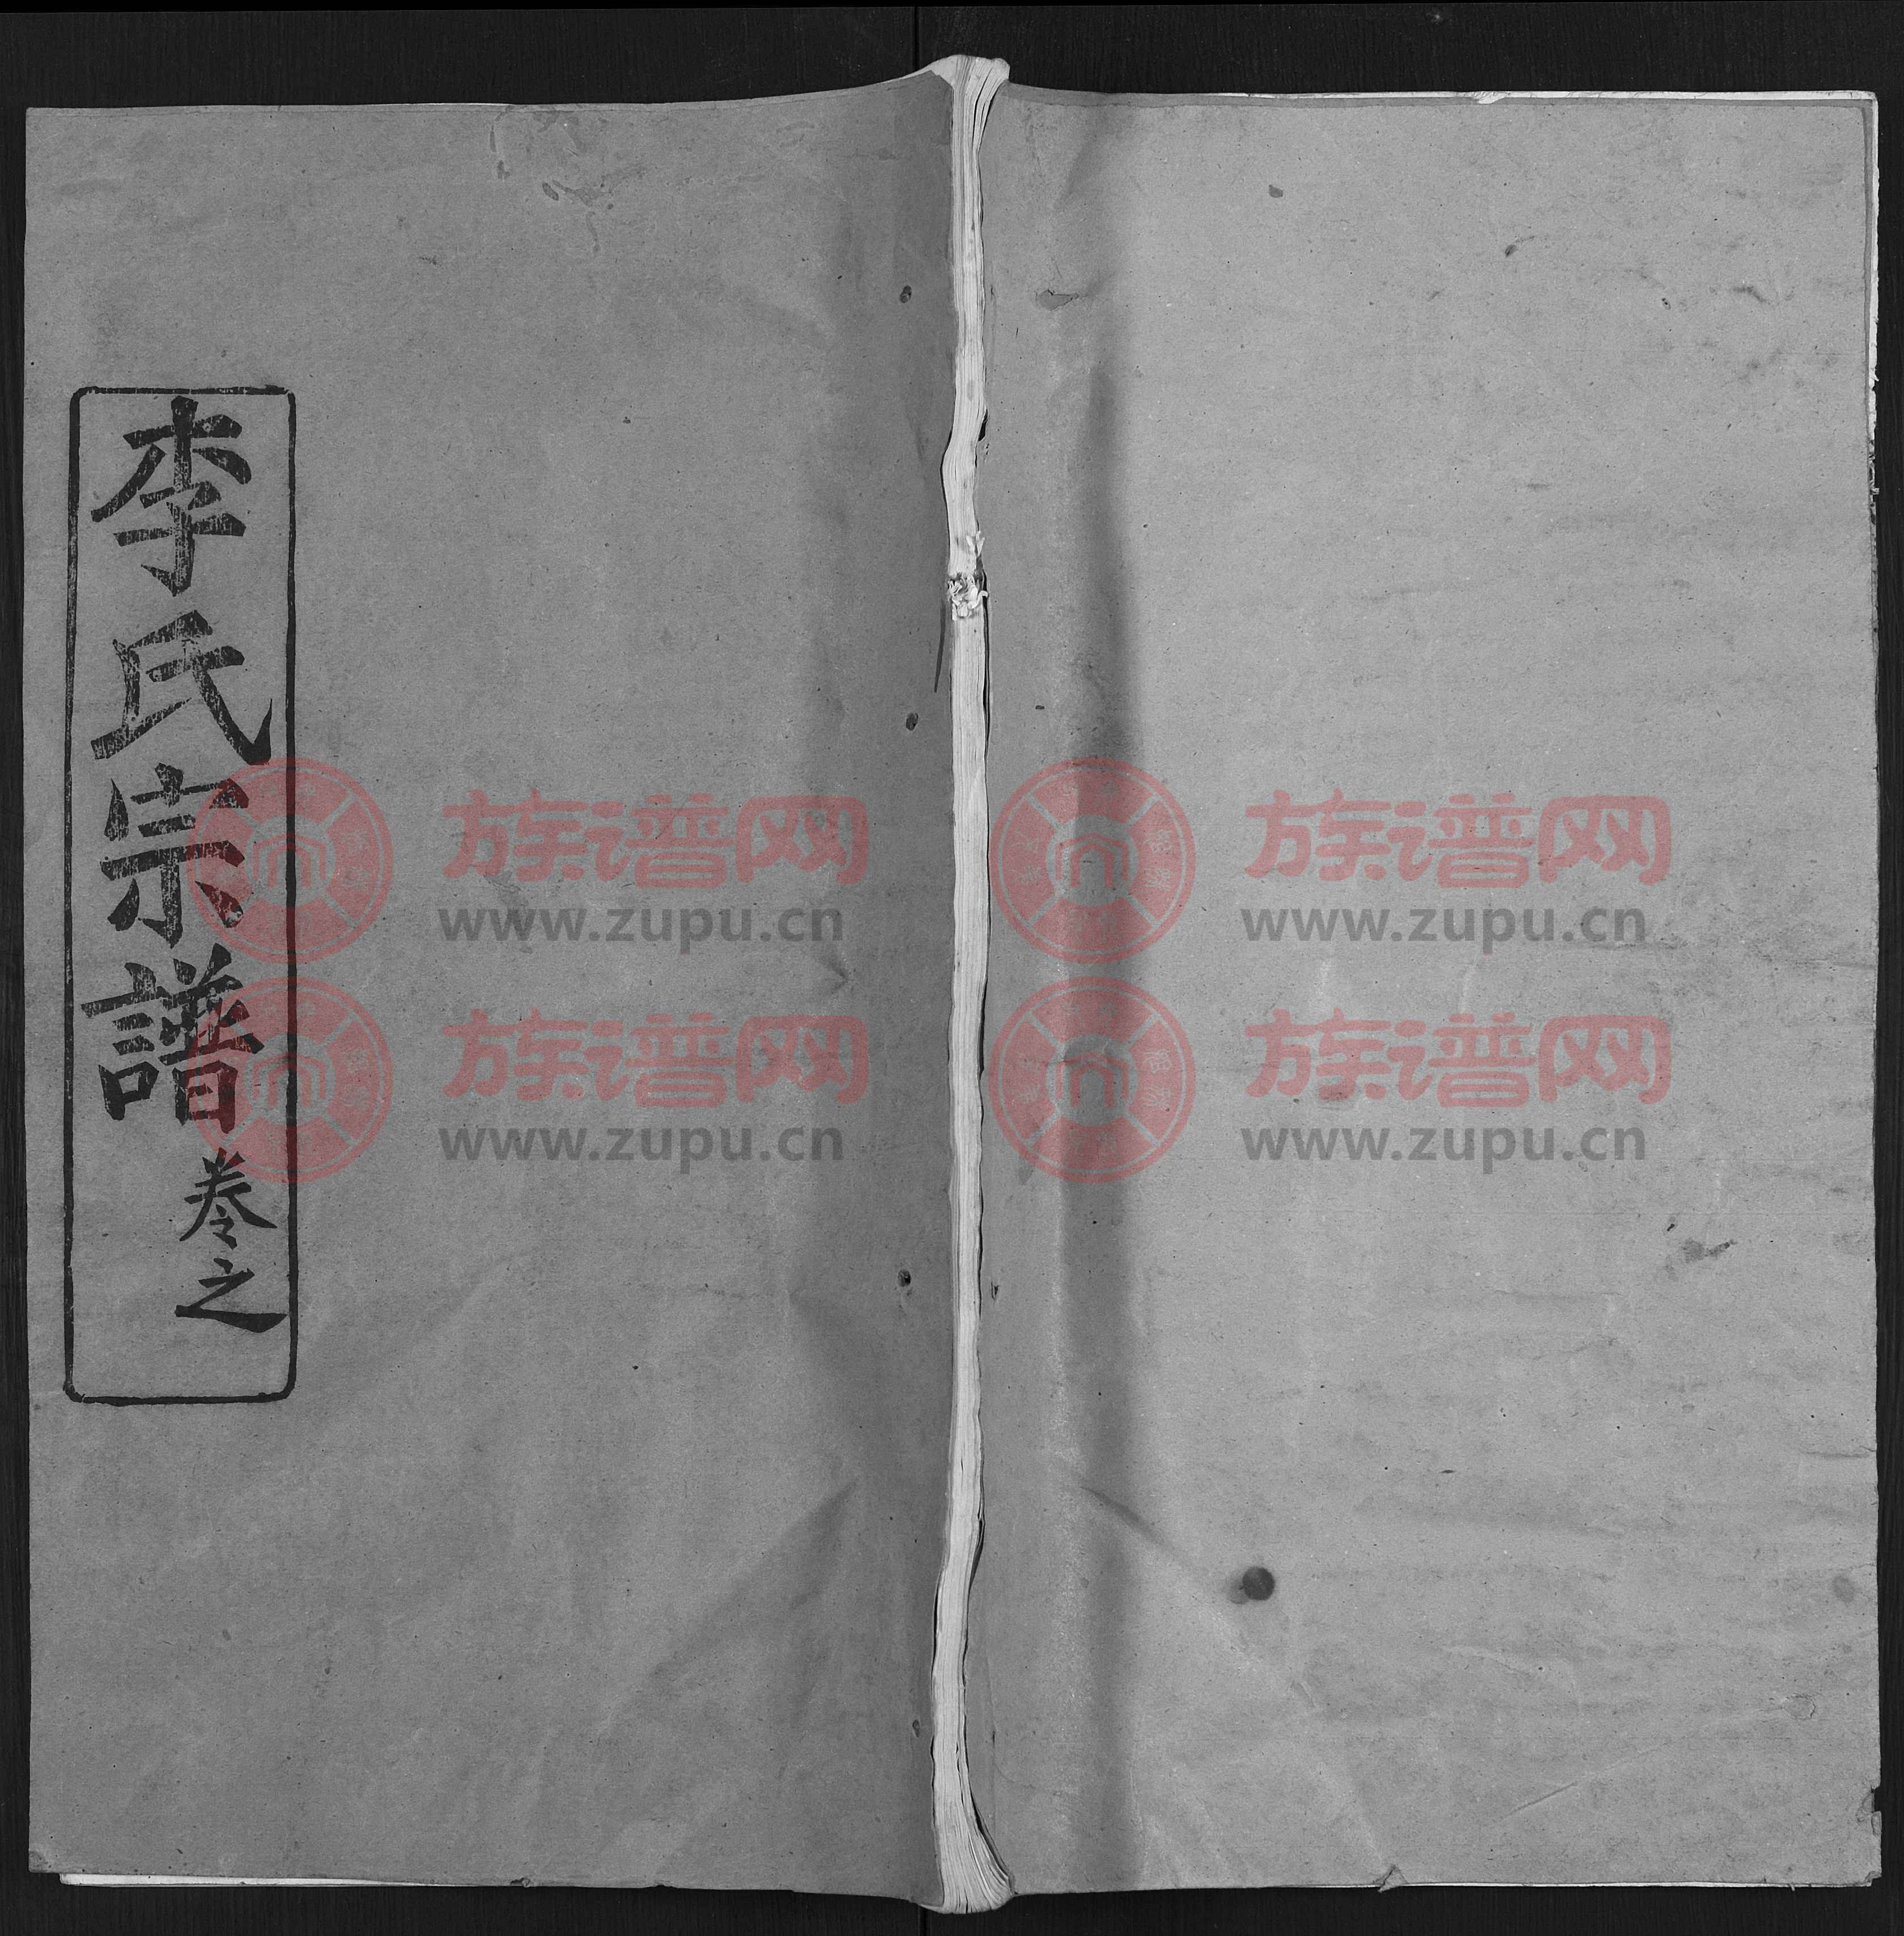 李氏宗譜
卷之
族谱网
www.zupu.cn
族谱网
www.zupu.cn
族谱网
www.zupu.cn
族谱网
www.zupu.cn